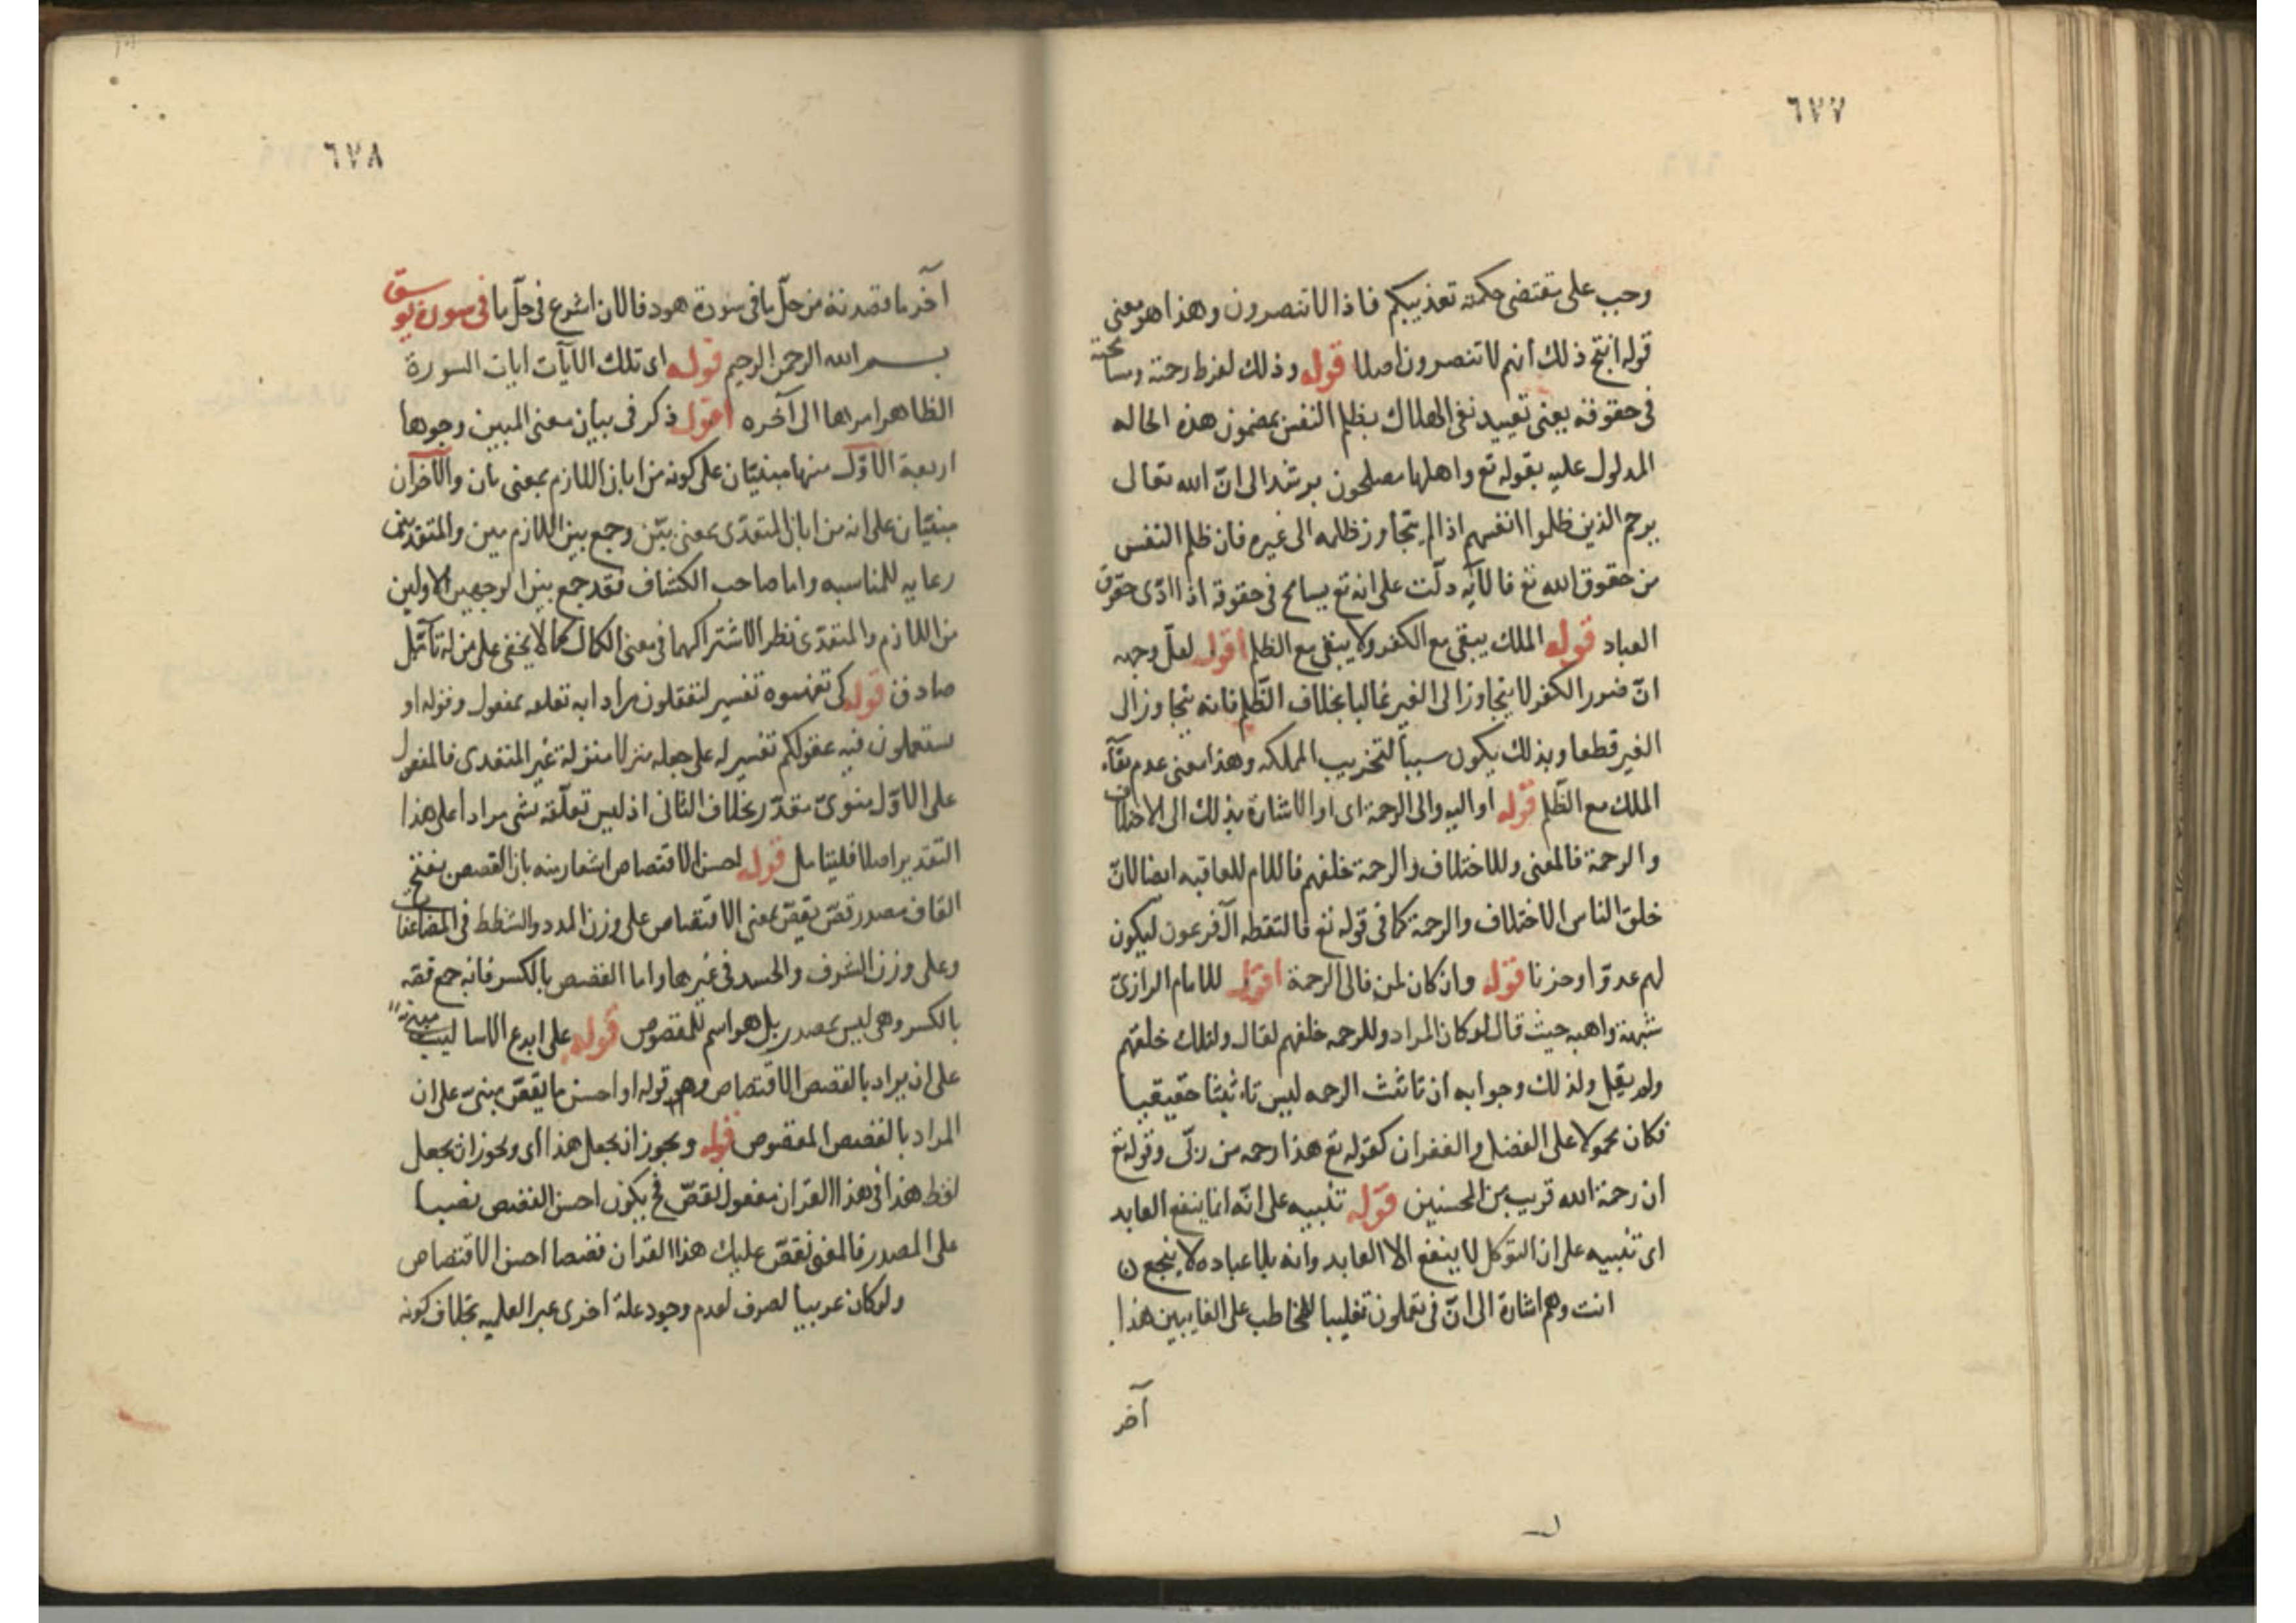 ٦٧٧
وجب على مقتضى حكمته تعذيبكم فاذا لا تنصرون وهذا هو معنى
قوله انتج ذلك انهم لا تنصرون اصلا قوله وذلك لفرط رحمته ومسامحته
فى حقوقه يعنى تقييد نفى الهلاك بظلم النفس بمضمون هذه الحاله
المدلول عليه بقوله تع واهلها مصلحون يرشد الى انّ الله تعالى
يرحم الذين ظلموا انفسهم اذا لم يتجاوز ظلمه الى غيره فان ظلم النفس
من حقوق الله تع فالآيه دلّت على انه تع يسامح فى حقوقه اذا ادّى حقوق
العباد قوله الملك يبقى مع الكفر ولا يبقى مع الظلم اقول لعلّ وجهه
انّ ضرر الكفر لا يتجاوز الى الغير غالبا بخلاف الظّلم فانه يتجاوز الى
الغير قطعا وبذلك يكون سببا لتخريب المملكه وهذا معنى عدم بقآء
الملك مع الظّلم قوله او اليه والى الرحمة اى او الاشارة بذلك الى الاختلاف
والرحمة فالمعنى وللاختلاف والرحمة خلقهم فاللام للعاقبه ايضا لانّ
خلق الناس الاختلاف والرحمة كما فى قوله تع فالتقطه آل فرعون ليكون
لهم عدوّا وحزنا قوله وان كان لمن فالى الرحمة اقول للامام الرازىّ
شبهة واهبه حيث قال لو كان المراد وللرحمه خلقهم لقال ولتلك خلقهم
ولم يقل ولذلك وجوابه ان تانثث الرحمه ليس تانيثا حقيقيا
فكان محمولا على الفضل والغفران كقوله تع هذا رحمه من ربّى وقوله تع
ان رحمة الله قريب من المحسنين قوله تنبيه على انّه انما ينفع العابد
اى تنبيه على ان التوكل لا ينفع الا العابد وانه بلا عباده لا ينجع ن
انت وهم اشارة الى انّ فى تعملون تغليبا للمخاطب على الغايبين هذا
آخر
٦٧٨
آخر ما قصدته من حلّ ما فى سورة هود فالان اشرع فى حلّ ما فى سورة يوسف
بسم الله الرحمن الرحيم قوله اى تلك الآيات ايات السورة
الظاهر امرها الى آخره اقول ذكر فى بيان معنى المبين وجوها
اربعة الاوّل منها مبنيّان على كونه من ابان اللازم بمعنى بان والآخران
مبنيّان على انه من ابان المتعدّى بمعنى بيّن وجمع بين اللازم مين والمتعديين
رعايه للمناسبه واما صاحب الكشاف فقد جمع بين الوجهين الاولين
من اللازم والمتعدّى نظرا لاشتراكهما فى معنى الكمال كما لا يخفى على من له تآمّل
صادق قوله كى تفهموه تفسير لتعقلون مرادا به تعلقه بمفعول وقوله او
ستعملون فيه عقولكم تفسير له على جعله منزلا منزلة غير المتعدى فالمفعول
على الاوّل منوىّ مقدّر بخلاف الثانى اذ ليس تعلّقه بشى مرادا على هذا
التقدير اصلا فليتامل قوله احسن الاقتصاص اشعار منه بان القصص بفتح
القاف مصدر قصّ يقصّ بمعنى الاقتصاص على وزن المدد والشطط فى المضاعفات
وعلى وزن الشرف والحسد فى غيرها واما القصص بالكسر فانه جمع قصّه
بالكسر وهى ليس بمصدر بل هو اسم للمقصوص قوله على ابدع الاساليب مبنىّ
على ان يراد بالقصص الاقتصاص وهو قوله او احسن ما يقصّ مبنىّ على ان
المراد بالقصص المقصوص قوله ويجوز ان يجعل هذا اى ويجوز ان يجعل
لفظ هذا فى هذا القران مفعول نقصّ فح يكون احسن القصص نصبا
على المصدر فالمعنى نقصّ عليك هذا القران قصصا احسن الاقتصاص
ولو كان عربيا لصرف لعدم وجود علة اخرى غير العلميه بخلاف كونه